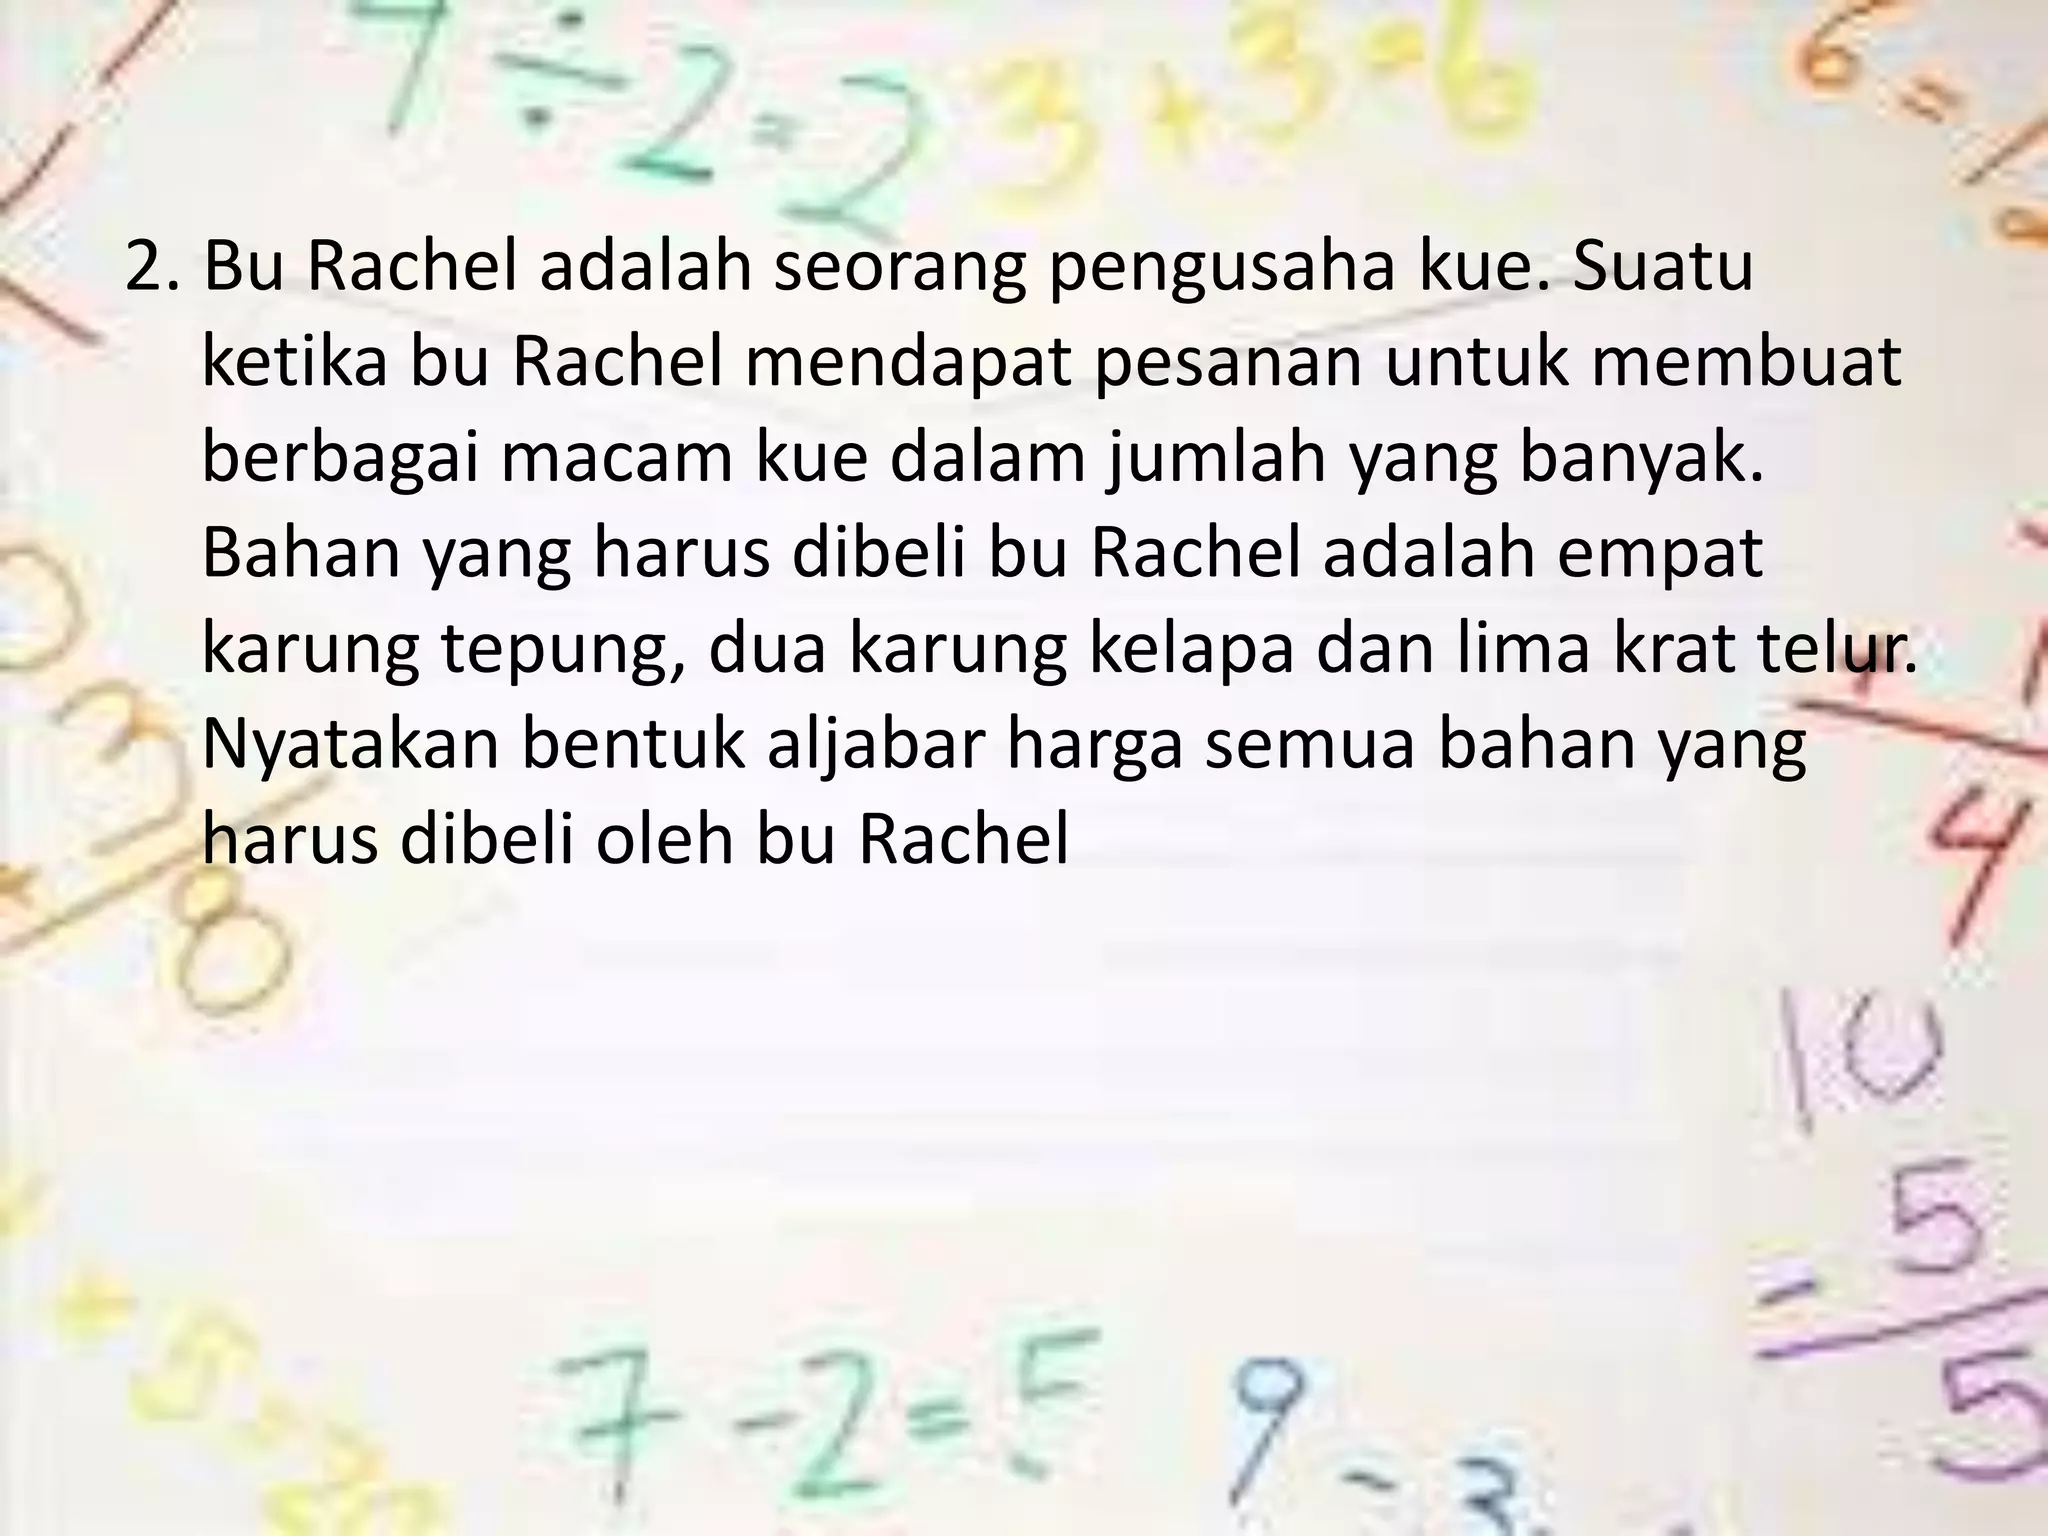 7 ÷ 2 = 2
3 + 3 = 6
6 =
2. Bu Rachel adalah seorang pengusaha kue. Suatu
ketika bu Rachel mendapat pesanan untuk membuat
berbagai macam kue dalam jumlah yang banyak.
Bahan yang harus dibeli bu Rachel adalah empat
karung tepung, dua karung kelapa dan lima krat telur.
Nyatakan bentuk aljabar harga semua bahan yang
harus dibeli oleh bu Rachel
3
8
4
10
- 5
5
7 - 2 = 5
9 - 3